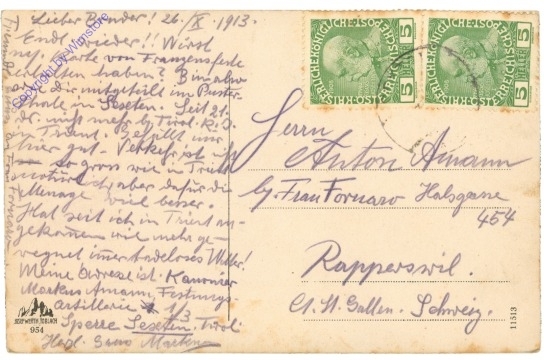 Lieber Bruder! 26./X 1913.
Endl. wieder!! Wirst
m. Karte von Franzensfeste
erhalten haben? Bin also
wie dir mitgeteilt im Puster-
thale in Sexten. Seit 21.
dr. nicht mehr b/ Tirol. K.J.
in Trient. Gefällt mir
hier gut - Verkehr ist
so gross wie in Trient
natürlich aber dafür die
Menage viel besser.
Hat seit ich in Trient an-
gekommen nie mehr ge-
regnet immer tadelloses Wetter!
Meine Adresse ist: Kanonier
Markus Amann, Festungs-
artillerie 1/3
Sperre Sexten. Tirol
Herzl. Gruss Markus
Copyright by Wimstore
JOSEF WERTH TOBLACH
954
KAISERLICHE KÖNIGLICHE
ÖSTERREICHISCHE
5 HELLER 5
KAISERLICHE KÖNIGLICHE
ÖSTERREICHISCHE
5 HELLER 5
Herrn
Anton Amann
b/ Frau Fornaro Halsgasse
454
Rapperswil.
Ct. St. Gallen. Schweiz.
11513